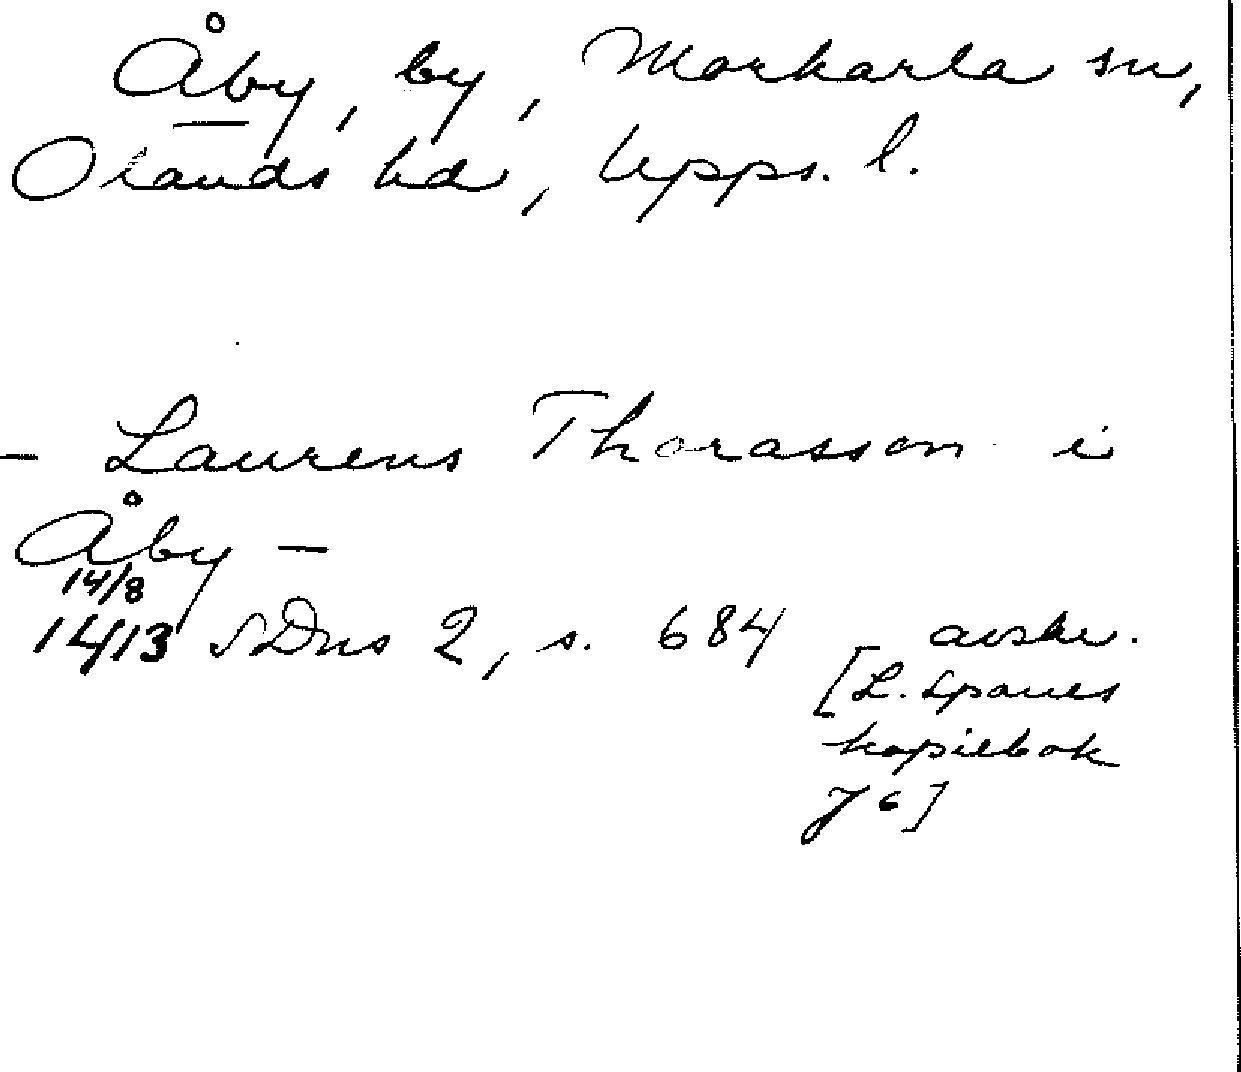 Åby, by, Morkarla sn,
Olands hd, Upps. l.
- Laurens Thorasson i
Åby -
14/8
1413 SDns 2, s. 684 avskr.
[L. Spanes
kopiebok
J 6]